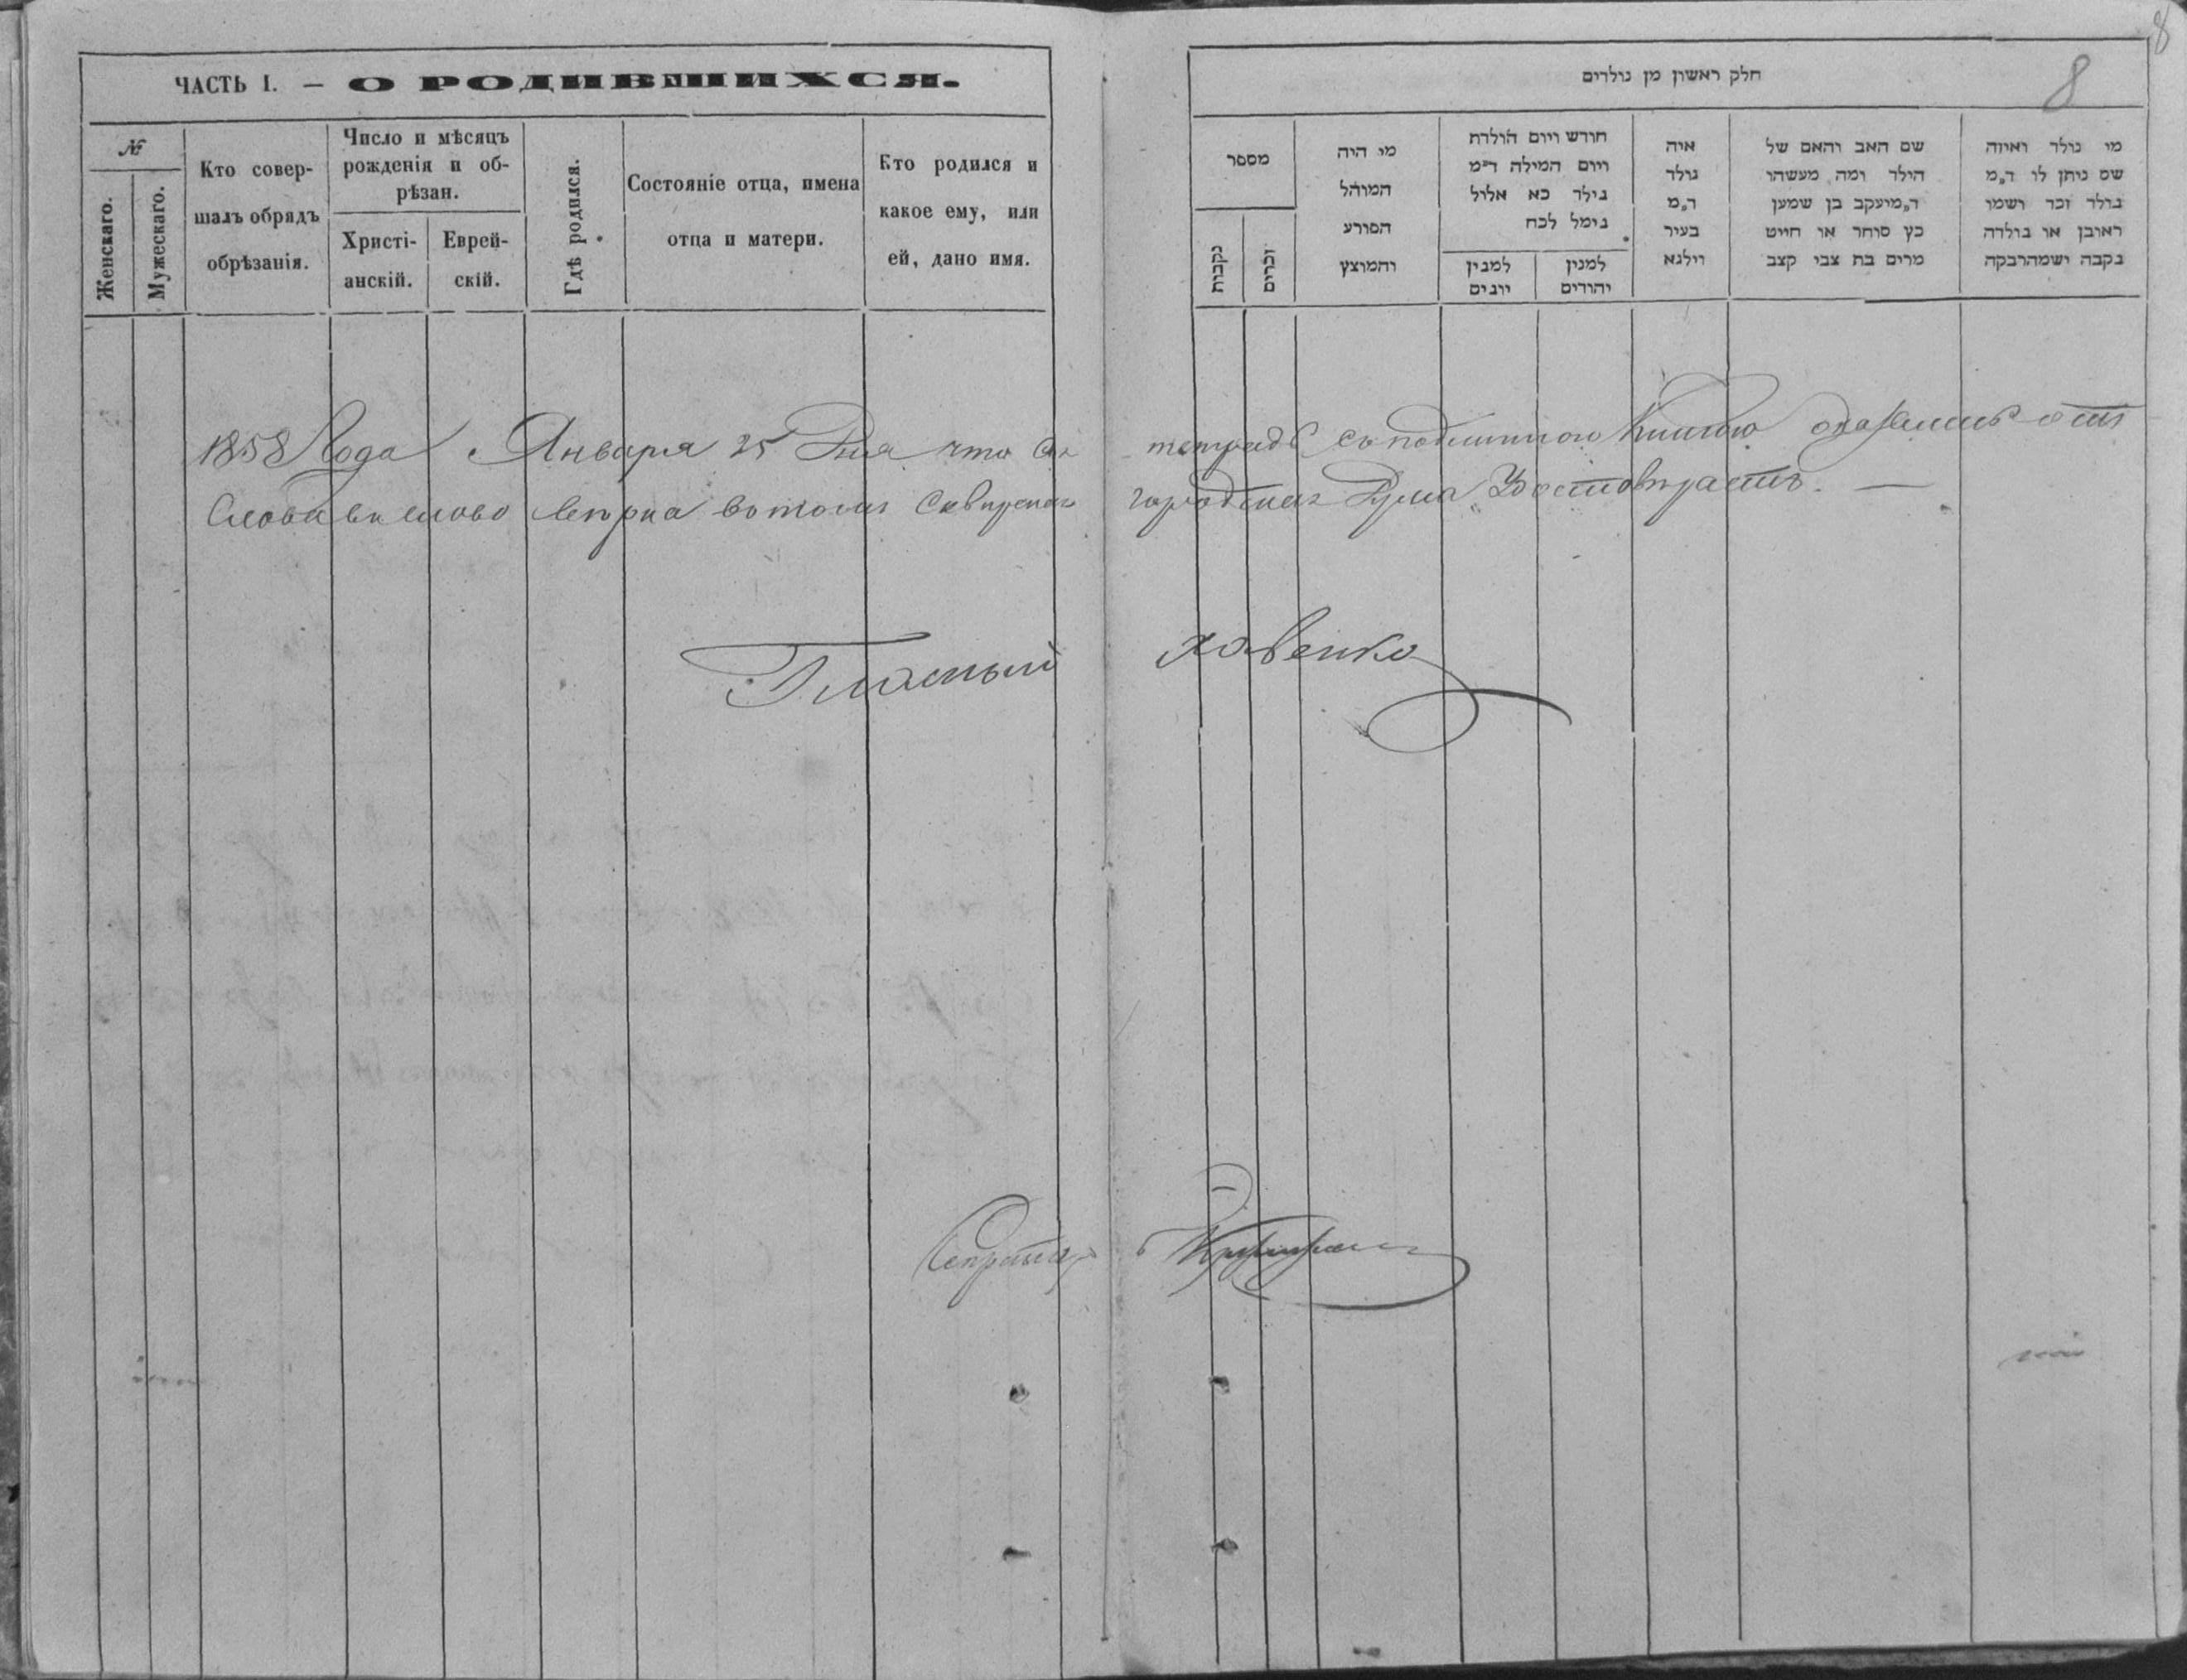 8
ЧАСТЬ I. — О РОДИВШИХСЯ.
№
Женскаго.
Мужескаго.
Кто совер-
шалъ обрядъ
обрѣзанія.
Число и мѣсяцъ
рожденія и об-
рѣзан.
Христі-
анскій.
Еврей-
скій.
Гдѣ родился.
Состояніе отца, имена
отца и матери.
Кто родился и
какое ему, или
ей, дано имя.
חלק ראשון מן נולדים
8
מספר
נקבות
זכרים
מי היה
המוהל
הפורע
והמוצץ
חודש ויום הולדת
ויום המילה ד"מ
נילד כא אלול
נימל לכח
למנין
יונים
למנין
יהודים
איה
נולד
ד"מ
בעיר
וילנא
שם האב והאם של
הילד ומה מעשהו
ד"מ יעקב בן שמעון
כץ סוחר או חייט
מרים בת צבי קצב
מי נולד ואיזה
שם ניתן לו ד"מ
נולד זכר ושמו
ראובן או נולדה
נקבה ושמה רבקה
1858 Года Января 25 Дня что сія тетрадь съ подлинною Книгою
Слова въ слово верна вотомъ Сквирская городская Дума Удостовѣряетъ. —
Гласный ховенко
Секретарь